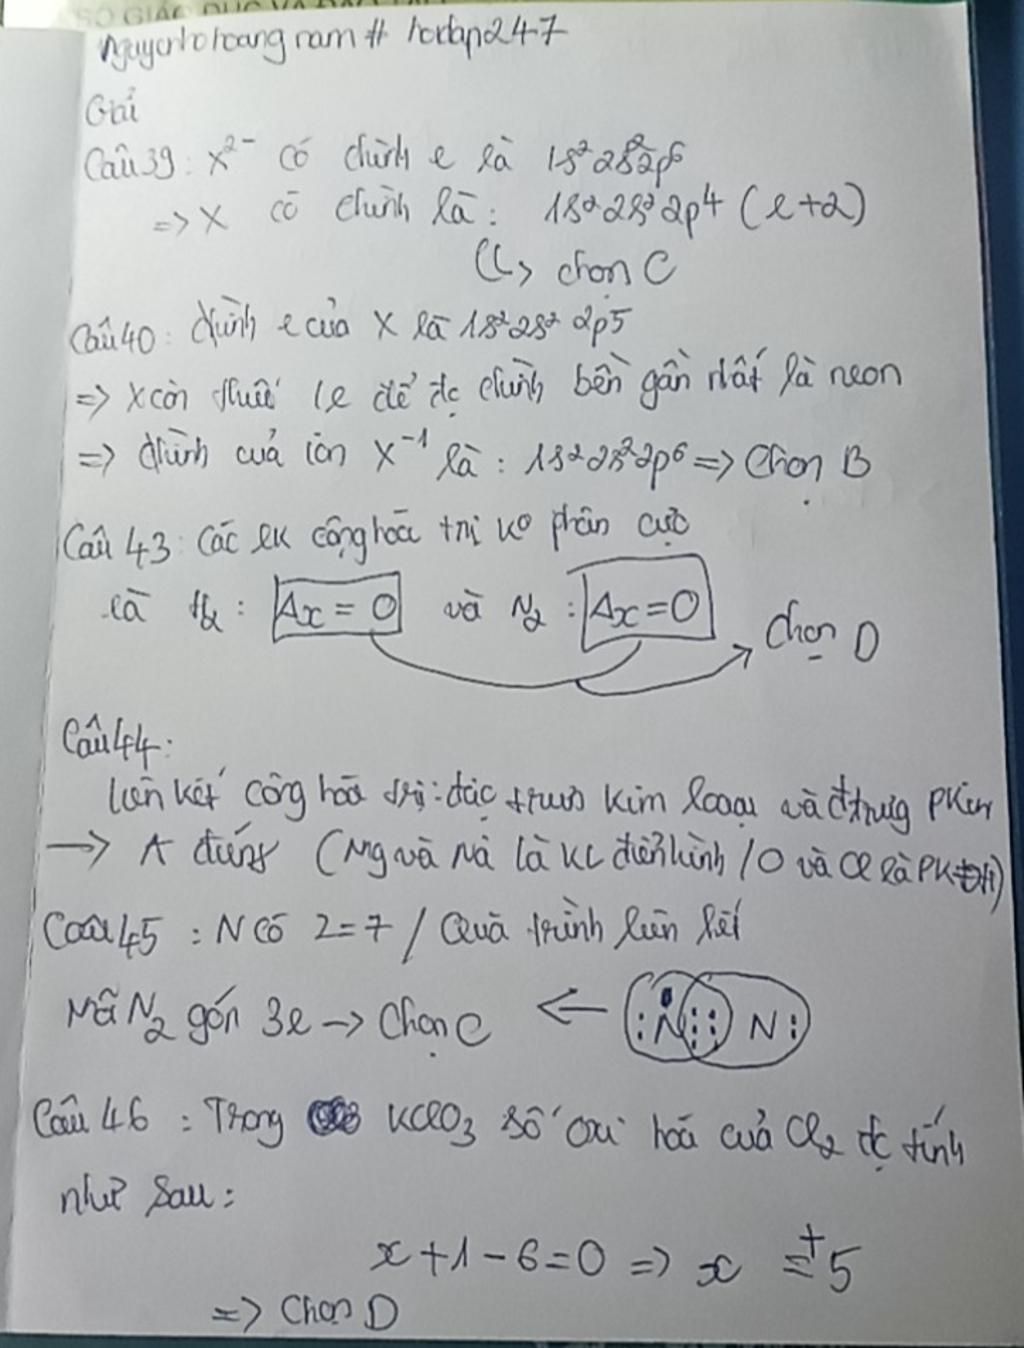 SỞ GIÁO DỤC VÀ ĐÀO
Nguyenhohoangnam# hoidap247
Giải
Câu 39: X²⁻ có chình e là 1s² 2s² 2p⁶
=> X có chình là: 1s² 2s² 2p⁴ (e+2)
↳ chọn C
Câu 40: chình e của X là 1s² 2s² 2p5
=> X còn thiếu 1e để đc chình bền gần nhất là neon
=> chình cuả ion X⁻¹ là: 1s² 2s² 2p⁶ => Chọn B
Câu 43: Các lk cộng hoá trị ko phân cực
là H₂: Δx = 0 và N₂: Δx=0 Chọn D
Câu 44:
liên kết cộng hoá trị: đặc trưng kim loại và đtrưng PKim
→ A đúng (Mg và Na là KL điển hình / O và Cl là PK ĐH)
Câu 45: N có Z=7 / Quá trình liên kết
Mỗi N₂ góp 3e → Chọn C ← :N N:
Câu 46: Trong KClO₃ số oxi hoá cuả Cl₂ đc tính
như sau:
x+1-6=0 => x =+5
=> Chọn D